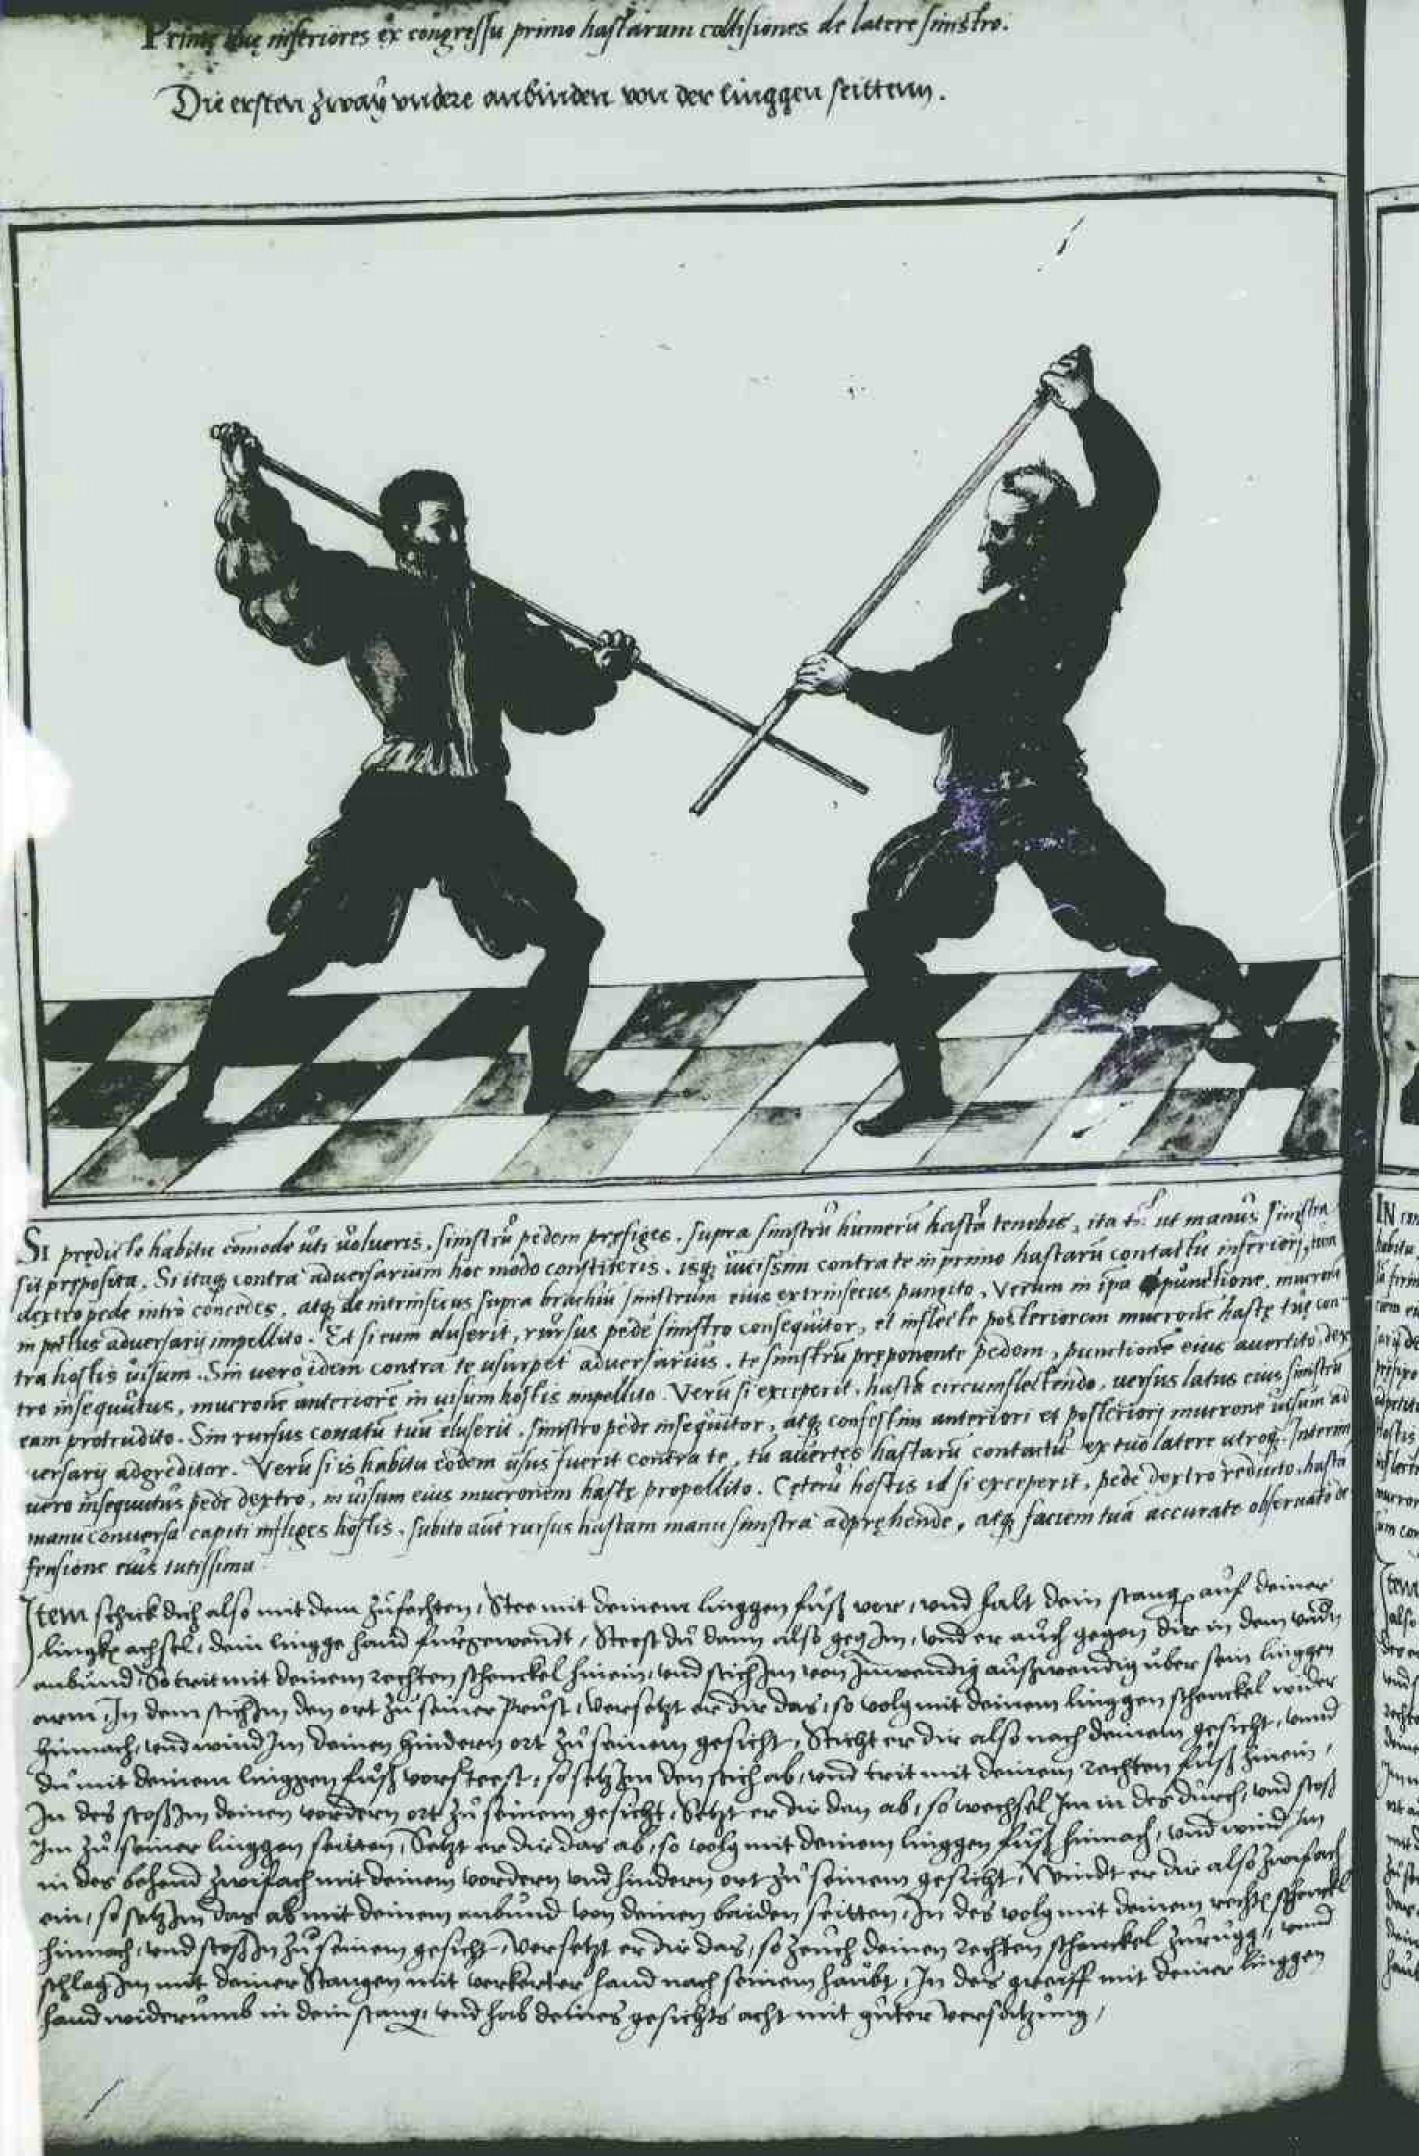 Primę duę inferiores ex congressu primo hastarum collisiones de latere sinistro.
Die ersten zwaÿ vndere anbinden von der linggen seittenn.
SI prędicto habitu cõmode uti uolueris, sinistrũ pedem pręfiges, supra sinistrũ humerũ hastã tenebis, ita tñ ut manus sinistra
sit pręposita. Si itaq̃ contra aduersarium hoc modo constiteris, isq̃ uicissim contra te in primo hastarũ contactu inferiori, tum
dextro pede intro concedes, atq̃ de intrinsecus supra brachiũ sinistrum eius extrinsecus pungito, Verum in ipa punctione, mucronẽ
in pectus aduersarij impellito. Et si eum eluserit, rursus pede sinistro consequitor, et inflecte posteriorem mucronẽ hastę tuę con-
tra hostis uisum. Sin uero idem contra te usurpet aduersarius, te sinistrũ pręponente pedem, punctionẽ eius auertito, dex
tro insequutus, mucronẽ anteriorẽ in uisum hostis impellito. Verũ si exceperit, hastã circumflectendo, uersus latus eius sinistrũ
eam protrudito. Sin rursus conatũ tuũ eluserit, sinistro pede insequitor, atq̃ confestim anteriori et posteriorj mucrone uisum ad
uersarij adgreditor. Verũ si is habitu eodem usus fuerit contra te, tu auertes hastarũ contactũ ex tuo latere utroq̃. Interim
uero insequutus pede dextro, in uisum eius mucronem hastę propellito. Cęterũ hostis id si exceperit, pede dextro reducto, hastã
manu conuersa capiti infliges hostis, subito aũt rursus hastam manu sinistra adpręhende, atq̃ faciem tuã accurate obseruato de
fensione eius tutissima.
Item schick dich also mit dem zůfechten, Stee mit deinem linggen fůß vor, vnd halt dein stang auf deiner
linggẽ achsel, dein lingge hand fürgewendt, Steest dů dann also gegẽ Im, vnd er aůch gegen dir in dem vndn
anbund, So trit mit deinem rechten schenckel hinein, vnd stich Im von Inwendig aůßwendig über sein linggen
arm, In dem stich Im den ort zů seiner průst, Versetzt er dir das, so volg mit deinem linggen schenckel wider
hinnach, vnd wind Im deinen hindern ort zů seinem gesicht, Sticht er dir also nach deinem gesicht, vnnd
dů mit deinem linggen fůß vorsteest, so setz Im den stich ab, vnd trit mit deinem rechten fůß hinein,
In des stoß Im deinen vordern ort zů seinem gesicht, Setzt er dir den ab, so wechsel Im in des důrch, vnd stoß
Im zů seiner linggen seitten, Setzt er dir das ab, so volg mit deinem linggen fůß hinnach, vnd wind Im
in des behend zwifach mit deinem vordern vnd hindern ort zů seinem gesicht, Windt er dir also zwifach
ein, so setz Im das ab mit deinem anbund von deinen baiden seitten, In des volg mit deinem rechtẽ schenckel
hinnach, vnd stoß In zů seinem gesicht, Versetzt er dir das, so zeuch deinen rechten schenckel zůrůgg, vnnd
schlag Im mit deiner Stangen mit verkerter hand nach seinem haůbt, In des greiff mit deiner linggen
hand widerůmb in dein stang, vnd hab deines gesichts acht mit gůter versatzůng,